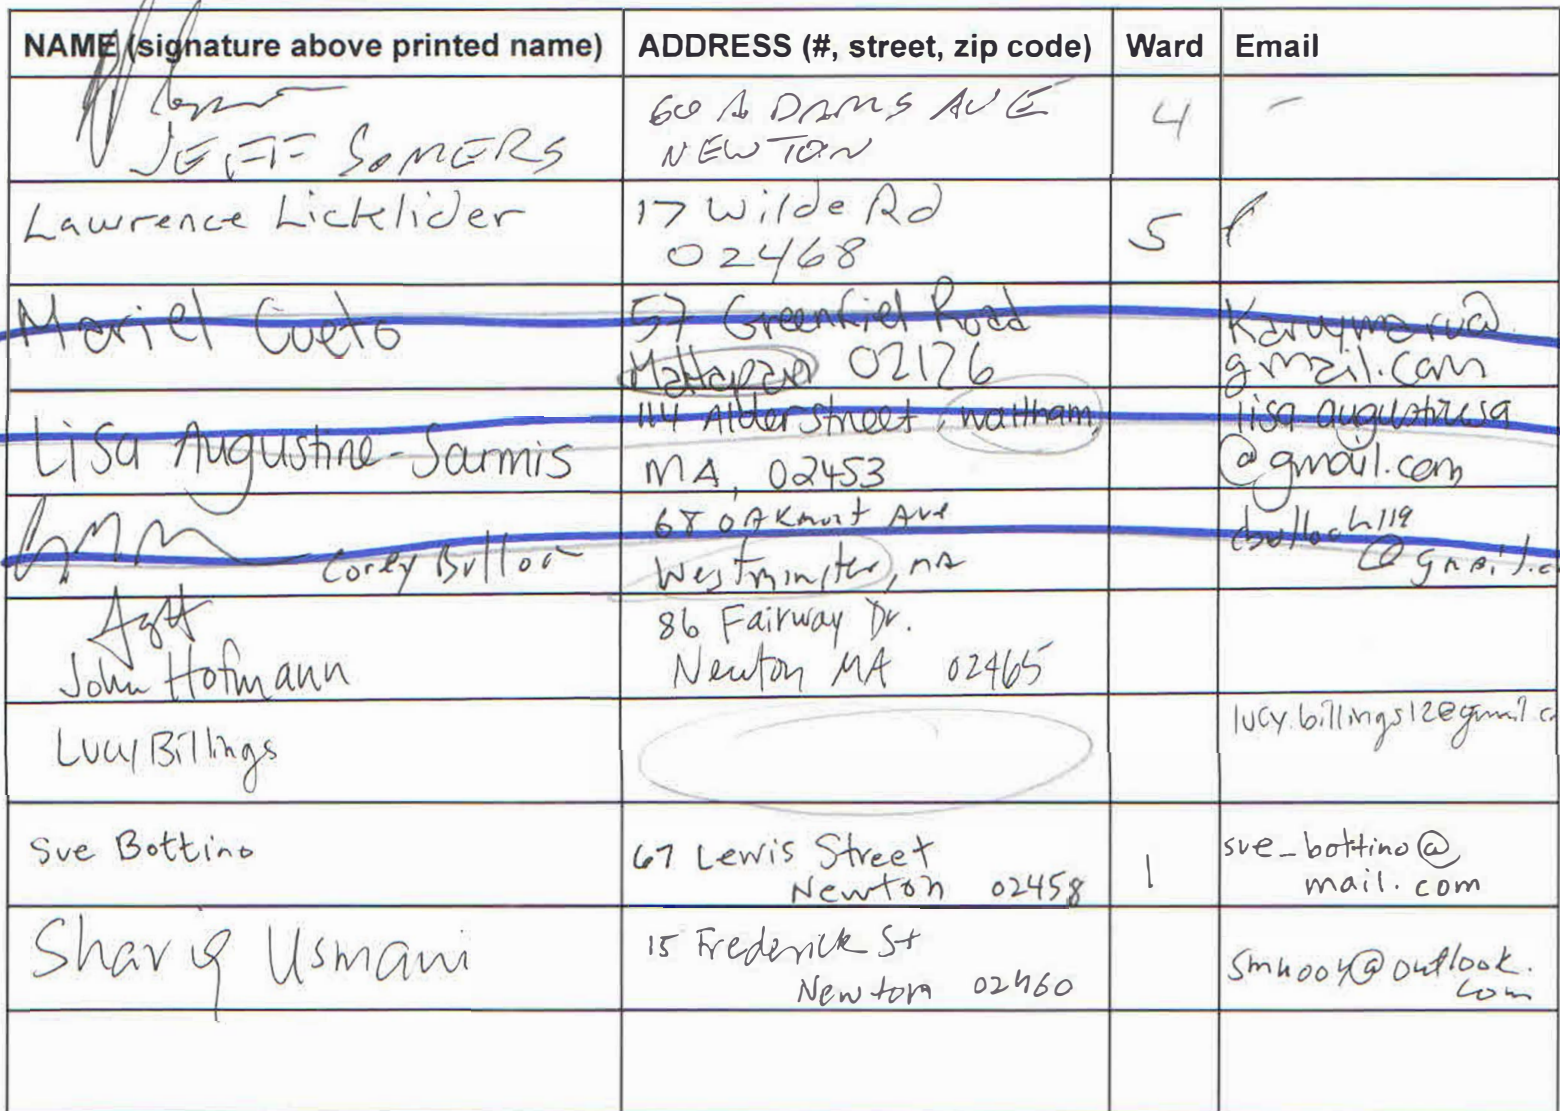 NAME (signature above printed name) ADDRESS (#, street, zip code) Ward Email
JEFF SOMERS 60 ADAMS AVE 4 -
NEWTON
Lawrence Licklider 17 Wilde Rd 5
02468
Mariel Cueto 57 Greenfiel Road
Mattapan 02126 gmail.com
Lisa Augustine-Sarmis 114 Alder street, waltham, lisa augustinesa
MA, 02453 @gmail.com
Corey 68 OAKmont Ave
Westminster, MA @gmail.c
John Hofmann 86 Fairway Dr.
Newton MA 02465
Lucy Billings lucy.billings12@gmail.c
Sue Bottino 67 Lewis Street 1 sue_bottino@
Newton 02458 mail.com
Shariq Usmani 15 Frederick St
Newton 02460 @outlook.
com